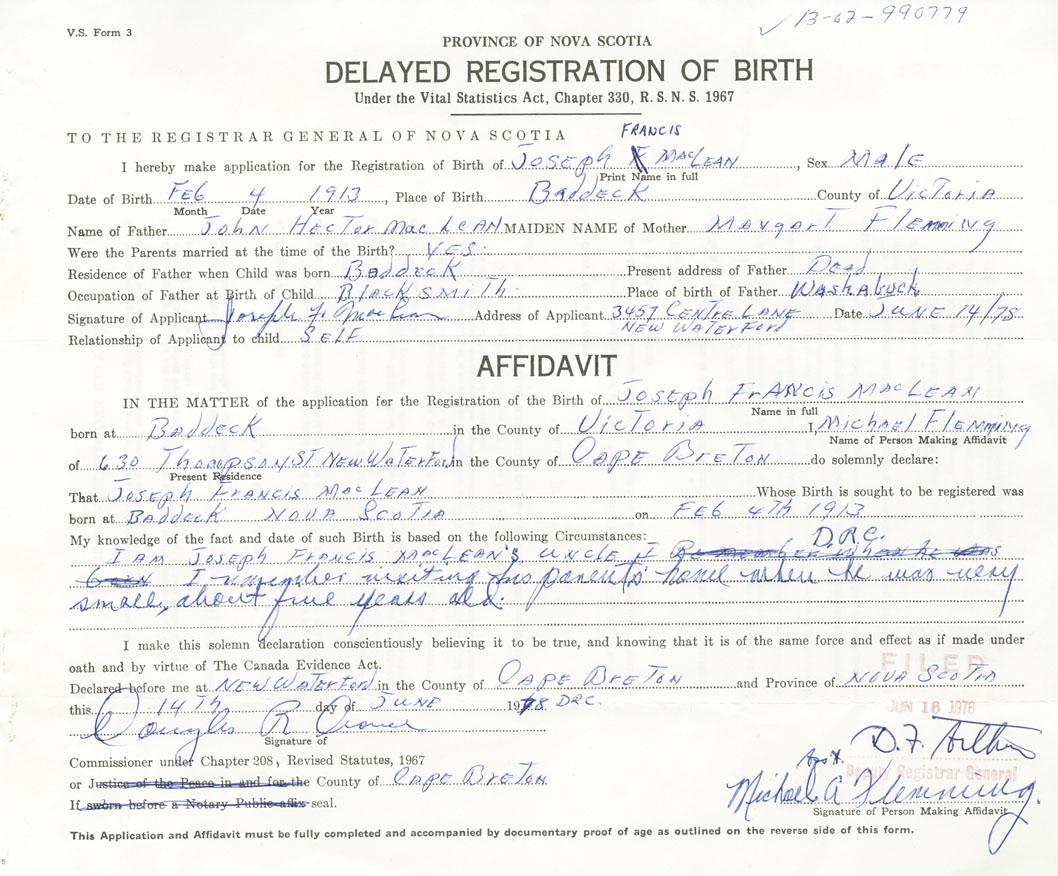 13-02-990779
V.S. Form 3
PROVINCE OF NOVA SCOTIA
DELAYED REGISTRATION OF BIRTH
Under the Vital Statistics Act, Chapter 330, R.S.N.S. 1967
TO THE REGISTRAR GENERAL OF NOVA SCOTIA FRANCIS
I hereby make application for the Registration of Birth of JOSEPH MACLEAN, Sex MALE
Print Name in full
Date of Birth FEB 4 1913, Place of Birth BADDECK County of VICTORIA
Month Date Year
Name of Father JOHN HECTOR MACLEAN MAIDEN NAME of Mother MARGART FLEMMING
Were the Parents married at the time of the Birth? YES.
Residence of Father when Child was born BADDECK Present address of Father DEAD
Occupation of Father at Birth of Child BLACKSMITH Place of birth of Father WASHABUCK
Signature of Applicant Joseph F. MacLean Address of Applicant 3457 CENTRE LANE Date JUNE 14/78
NEW WATERFORD
Relationship of Applicant to child SELF
AFFIDAVIT
IN THE MATTER of the application for the Registration of the Birth of JOSEPH FRANCIS MACLEAN
Name in full
born at BADDECK in the County of VICTORIA I, MICHAEL FLEMMING
Name of Person Making Affidavit
of 630 THOMPSON ST NEW WATERFORD in the County of CAPE BRETON do solemnly declare:
Present Residence
That JOSEPH FRANCIS MACLEAN Whose Birth is sought to be registered was
born at BADDECK NOVA SCOTIA on FEB 4TH 1913
My knowledge of the fact and date of such Birth is based on the following Circumstances: D.R.C.
I AM JOSEPH FRANCIS MACLEAN'S UNCLE & Remember when he was
born I remember visiting his parents' home when he was very
small, about five years old.
I make this solemn declaration conscientiously believing it to be true, and knowing that it is of the same force and effect as if made under
oath and by virtue of The Canada Evidence Act.
FILED
Declared before me at NEW WATERFORD in the County of CAPE BRETON and Province of NOVA SCOTIA
this 14TH day of JUNE 1978 DRC.
JUN 16 1978
Douglas R
Signature of
D.F.
Commissioner under Chapter 208, Revised Statutes, 1967
Deputy Registrar General
or Justice of the Peace in and for the County of CAPE BRETON
Michael A Flemming.
If sworn before a Notary Public affix seal.
Signature of Person Making Affidavit
This Application and Affidavit must be fully completed and accompanied by documentary proof of age as outlined on the reverse side of this form.
5